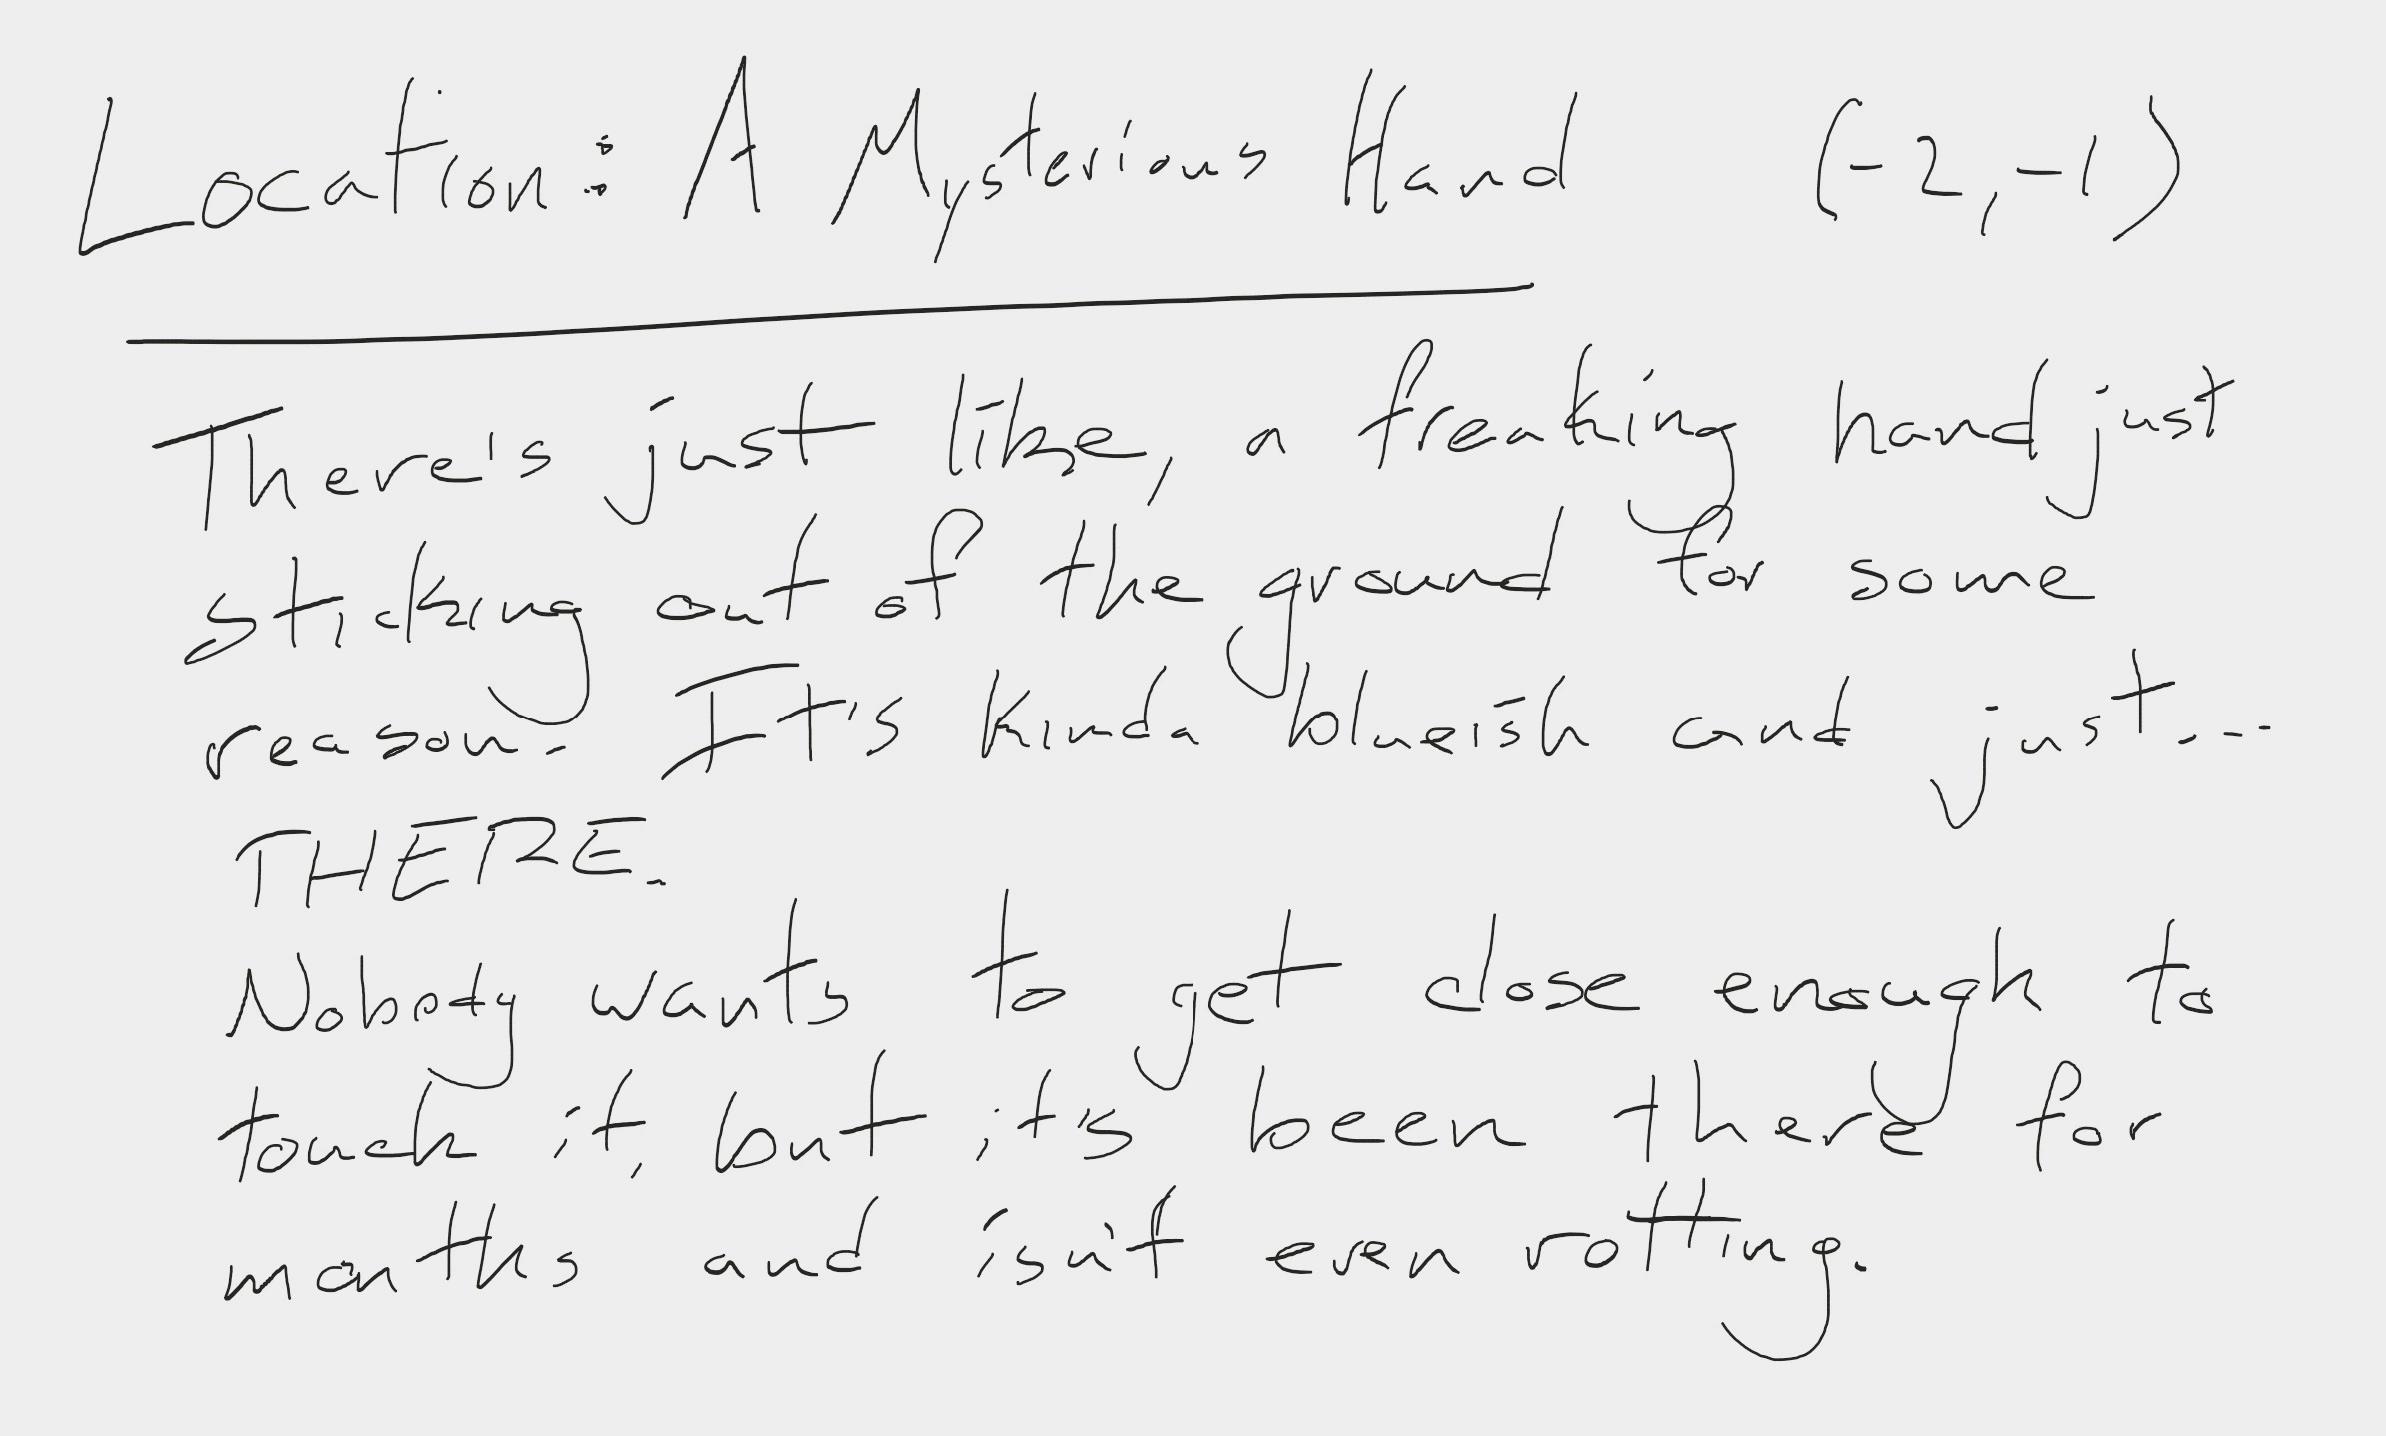 Location: A Mysterious Hand (-2,-1)
There's just like, a freaking hand just
sticking out of the ground for some
reason. It's kinda blueish and just...
THERE.
Nobody wants to get close enough to
touch it, but it's been there for
months and isn't even rotting.